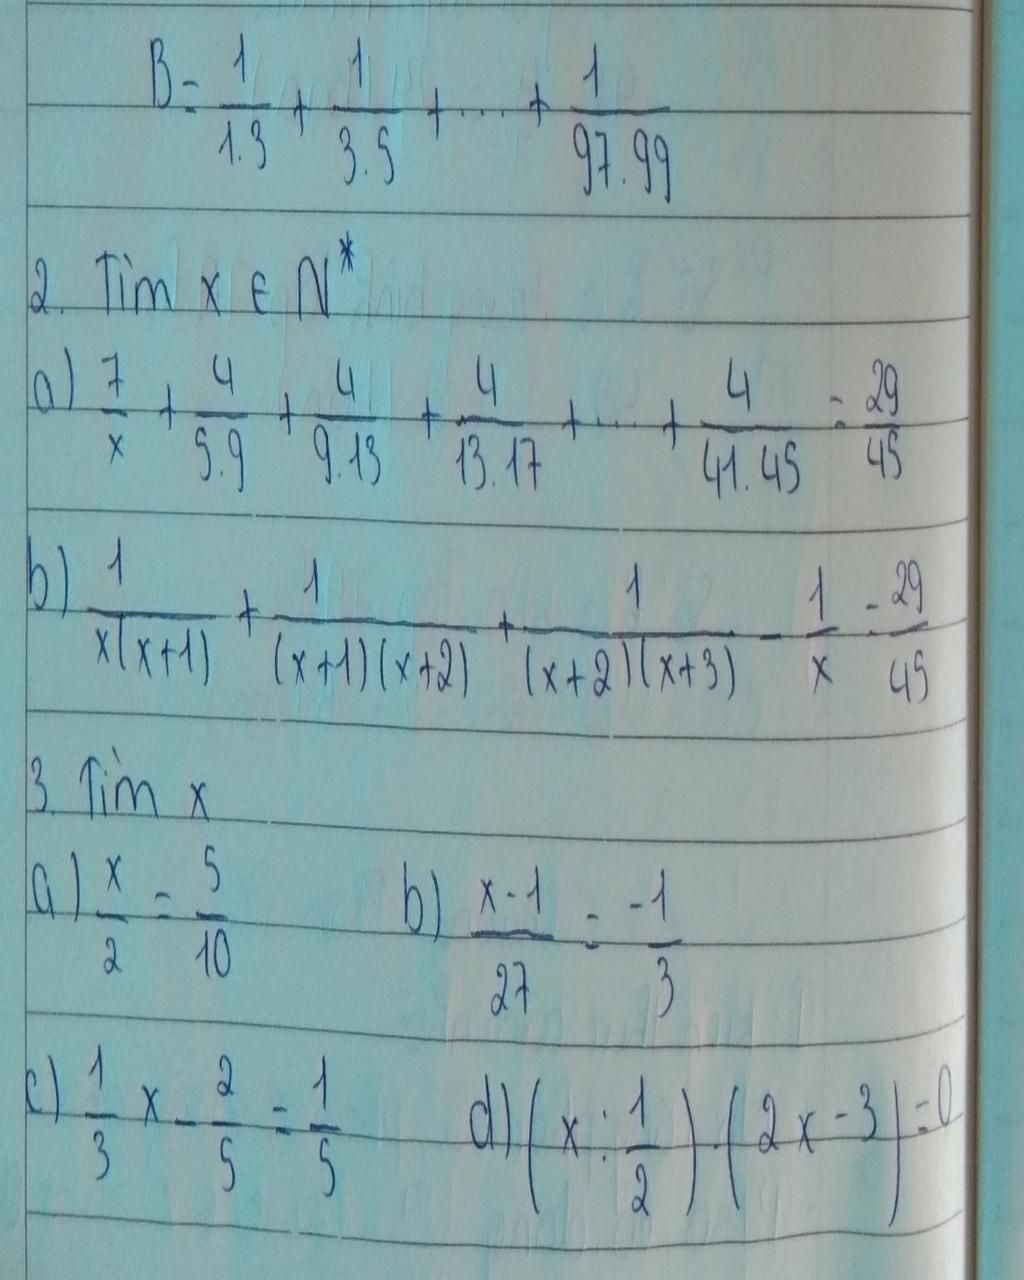 B = 1/1.3 + 1/3.5 + ... + 1/97.99
2. Tìm x ∈ N*
a) 7/x + 4/5.9 + 4/9.13 + 4/13.17 + ... + 4/41.45 = 29/45
b) 1/x(x+1) + 1/(x+1)(x+2) + 1/(x+2)(x+3) - 1/x = 29/45
3. Tìm x
a) x/2 = 5/10 b) x-1/27 = -1/3
c) 1/3 x - 2/5 = 1/5 d) (x : 1/2) . (2x - 3) = 0